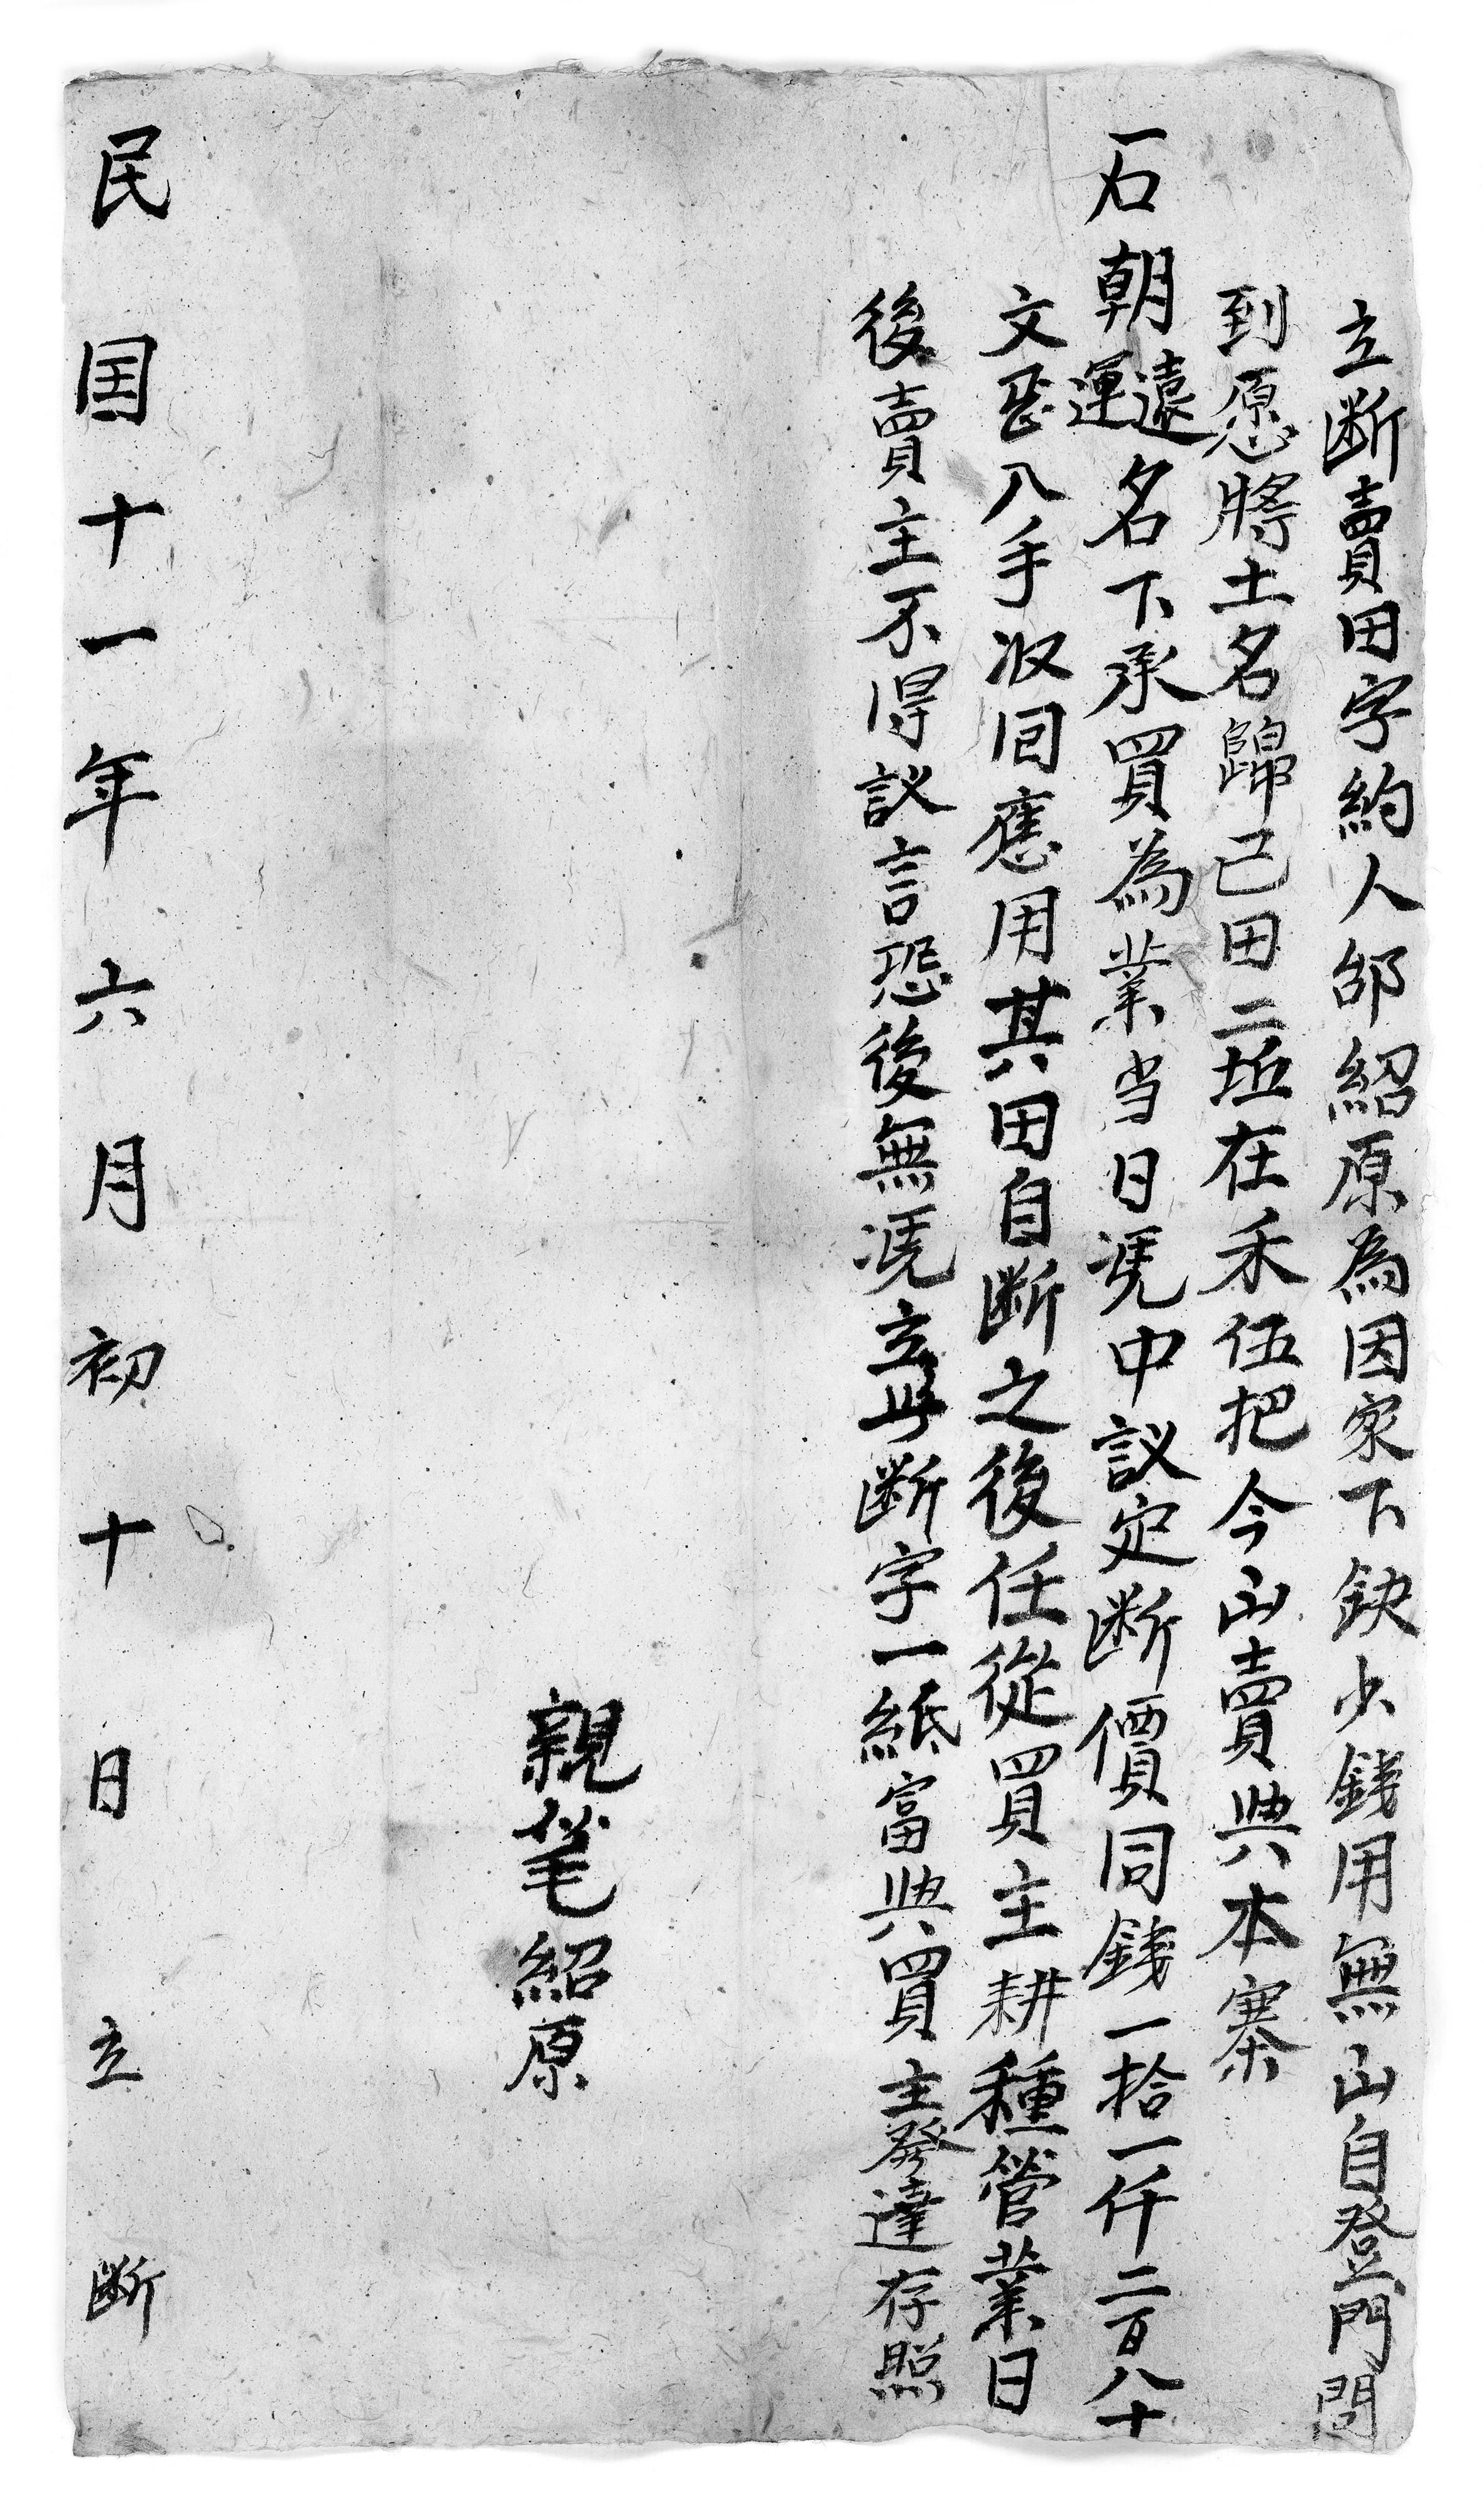 立断賣田字約人邰紹原為因家下缺少錢用無山自登門問
到愿將土名歸己田二坵在禾伍把今山賣與本寨
一石朝遠運名下承買為業当日凴中議定断價同錢一拾一仟二百八十
文八手收回應用其田自断之後任從買主耕種管業日
後賣主不得議言恐後無凴立此断字一紙富與買主發達存照
親筆紹原
民国十一年六月初十日立断